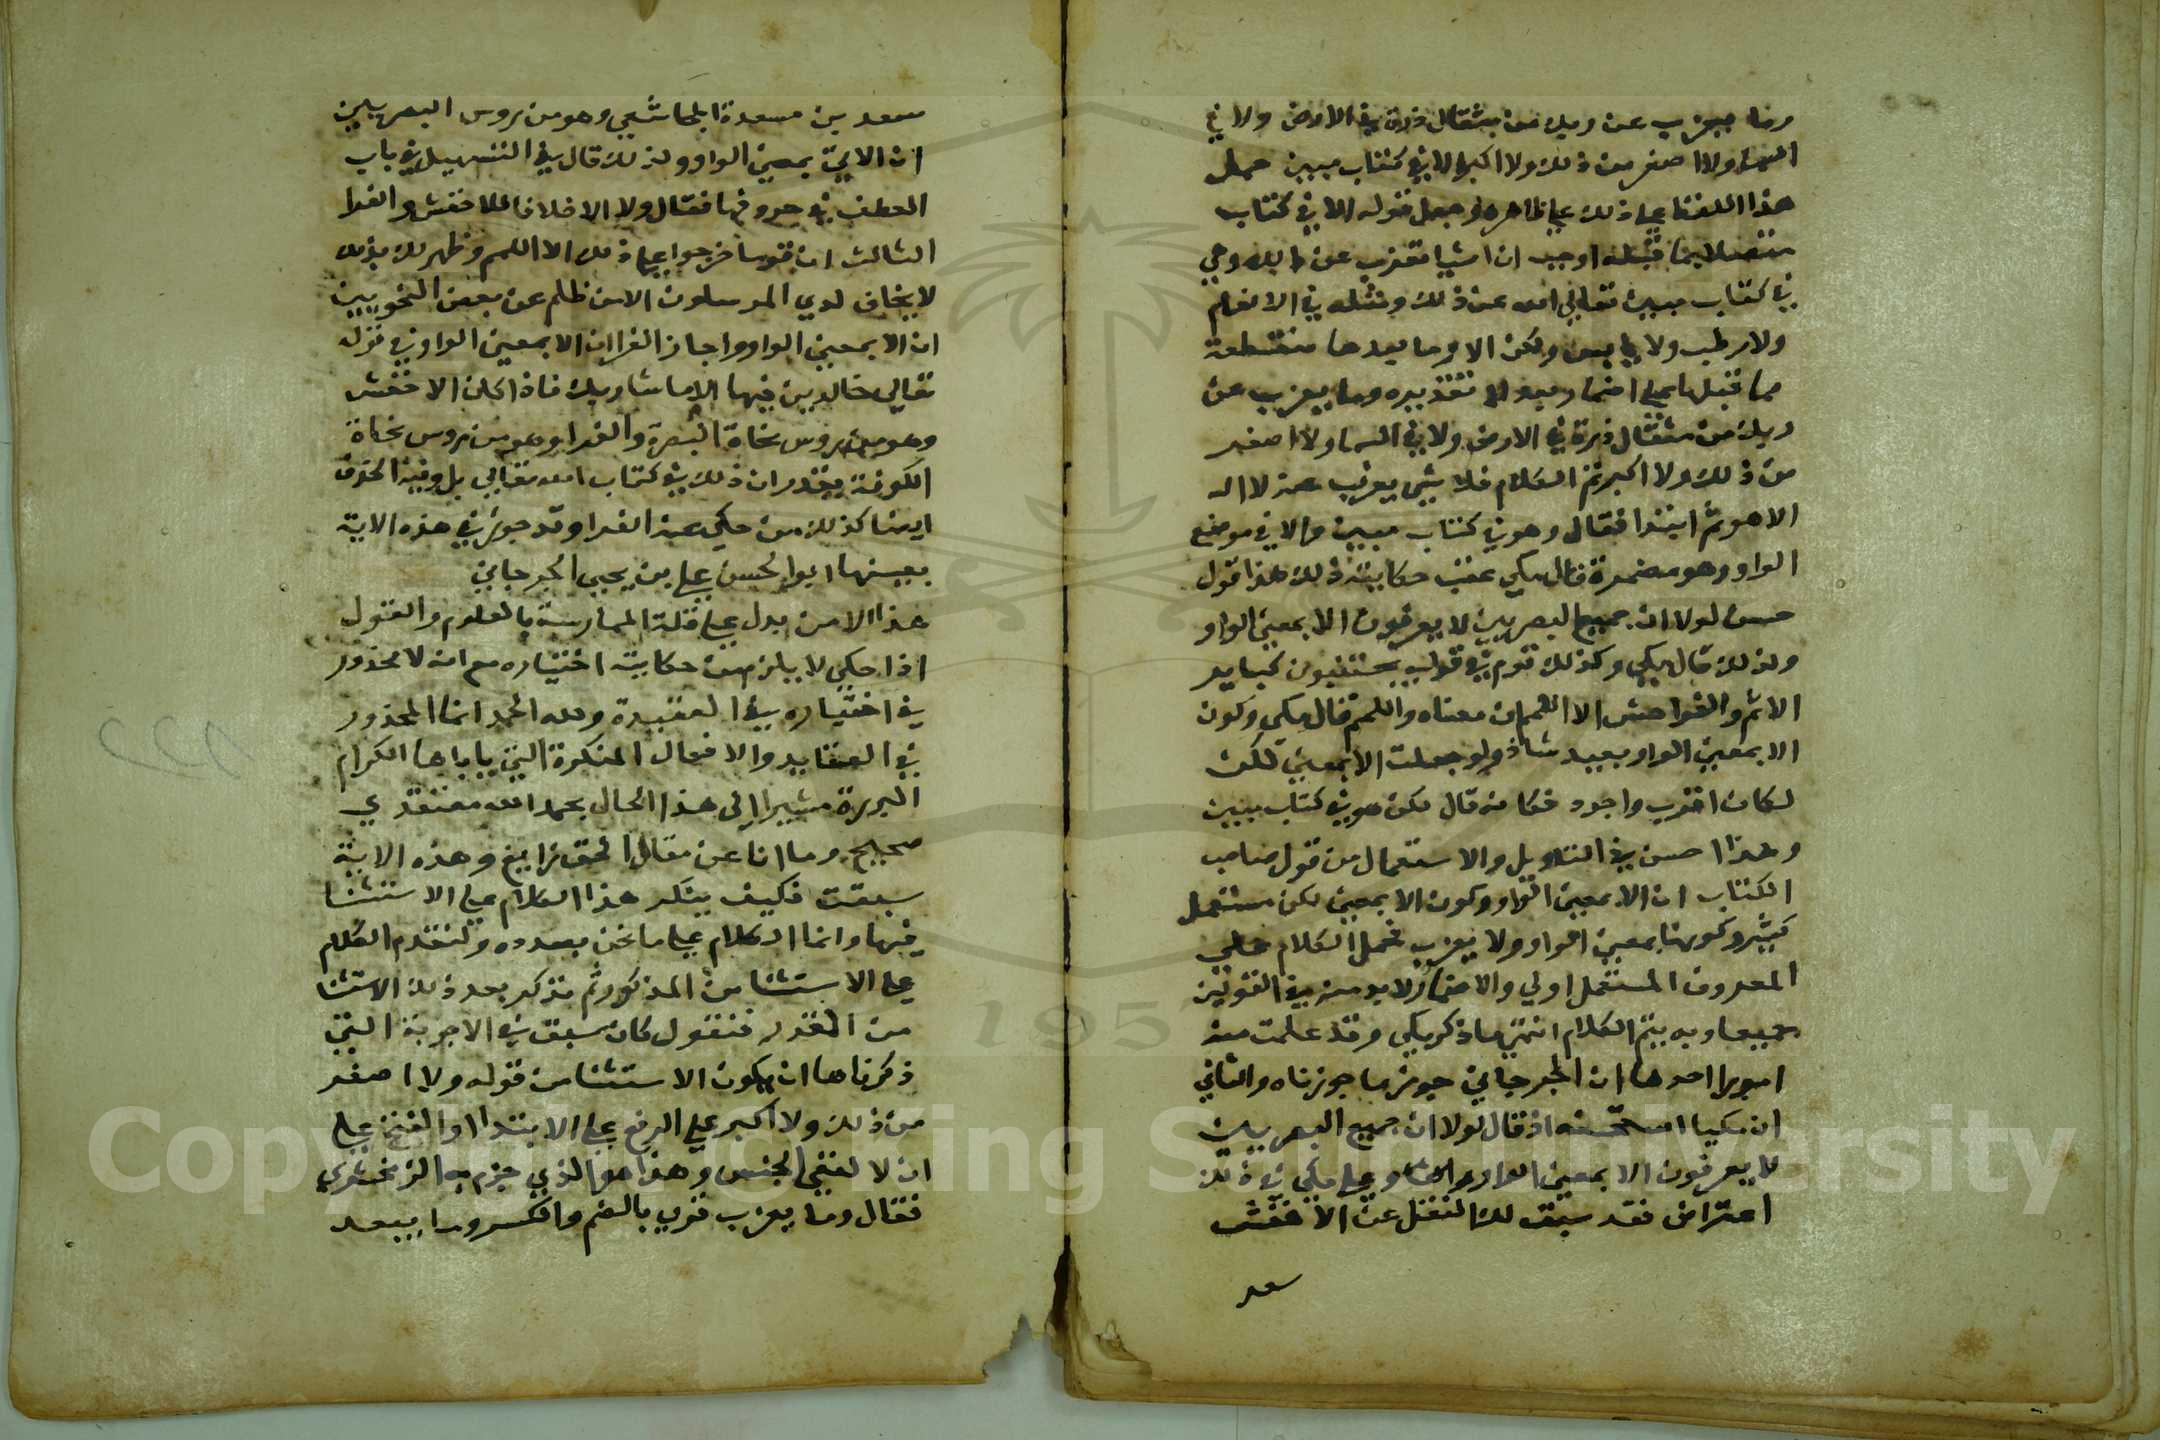 وما يعزب عن ربك من مثقال ذرة في الارض ولا في
السما ولا اصغر من ذلك ولا اكبر الا في كتاب مبين حمل
هذا اللفظ علي ذلك علي ظاهره وجعل قوله الا في كتاب
متصلا بما قبله اوجب ان اشيا تعزب عن ربك وهي
في كتاب مبين تعالي الله عن ذلك ومثله في الانعام
ولا رطب ولا يابس ولكن الا وما بعدها منقطعة
مما قبلها علي اضمار بعد الا تقديره وما يعزب عن
ربك من مثقال ذرة في الارض ولا في السما ولا اصغر
من ذلك ولا اكبر تم الكلام فلا شي يعزب عنه لا اله
الا هو ثم ابتدا فقال وهو في كتاب مبين والا في موضع
الواو وهو مضمرة قال مكي عقب حكايته ذلك هذا قول
حسن لولا ان جميع البصريين لا يعرفون الا بمعني الواو
ولذلك قال مكي وكذلك قوم في قوله يجتنبون كباير
الاثم والفواحش الا اللمم ان معناه واللمم قال مكي وكون
الا بمعني الواو بعيد شاذ ولو جعلت الا بمعني لكن
لكان اقرب واجود فكانه قال لكن هو في كتاب مبين
وهذا احسن في التاويل والاستعمال من قول صاحب
الكتاب ان الا بمعني الواو وكون الا بمعني لكن مستعمل
كثير وكونها بمعني الواو ولا يعرب فحمل الكلام علي
المعروف المستعمل اولي والاضمار لا بد منه في القولين
جميعا وبه يتم الكلام انتهي ما ذكر مكي وقد علمت منه
امورا احدها ان الجرجاني جوز ما جوزناه والثاني
ان مكيا استحسنه اذ قال لولا ان جميع البصريين
لا يعرفون الا بمعني الواو وعلي مكي في ذلك
اعتراض فقد سبق لك النقل عن الاخفش
سعد
سعد بن مسعدة المجاشعي وهو من روس البصريين
ان الا تاتي بمعني الواو ولذلك قال في التسهيل في باب
العطف في حروفها فقال ولا الا خلافا للاخفش والفرا
الثالث ان قوما خرجوا علي ذلك الا اللمم وظهر لك بذلك
لا يخاف لدي المرسلون الا من ظلم عن بعض النحويين
ان الا بمعني الواو واجاز الفرا ان الا بمعني الواو في قوله
تعالي خالدين فيها الا ما شا ربك فاذا كان الاخفش
وهو من روس نحاة البصرة والفرا وهو من روس نحاة
الكوفة يقدران ذلك في كتاب الله تعالي بل وفيه الحذف
ايضا كذلك من حكي عنه الفرا وقد جوز في هذه الاية
بعينها ابو الحسن علي بن يحيي الجرجاني
هذا الامر يدل علي قلة الممارسة بالعلوم والقول
اذا حكي لا يلزم من حكايته اختياره مع انه لا محذور
في اختياره في العقيدة ولله الحمد انما المحذور
في العقايد والافعال المنكرة التي ياباها الكرام
البررة مشيرا الي هذا الحال بحمد الله معتقدي
صحيح وما انا عن مقال الحق زايغ وهذه الاية
سبقت فكيف ينكر هذا الكلام علي الاستثنا
فيها وانما الكلام علي ما نحن بصدده ولنقدم الكلام
علي الاستثنا من المذكور ثم نذكر بعد ذلك الاستثنا
من المقدر فنقول كان سبق في الاجوبة التي
ذكرناها ان يكون الاستثنا من قوله ولا اصغر
من ذلك ولا اكبر علي الرفع علي الابتدا والفتح علي
ان لا لنفي الجنس وهذا هو الذي جزم به الزمخشري
فقال وما يعزب قري بالضم والكسر وما يبعد
Copyright © King Saud University
195